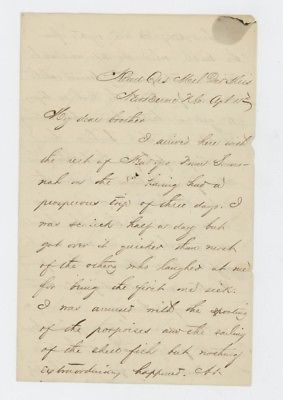 Head Qrs
New Berne N.C. Apl 12
My dear brother
I arrived here with
the rest of
on the having had a
prosperous trip of three days. I
was seasick half a day but
got over it quicker than much
of the others who laughed at me
for being the first one sick.
I was amused with the sporting
of the porpoises and the sailing
of the shell fish but nothing
extraordinary happened. At